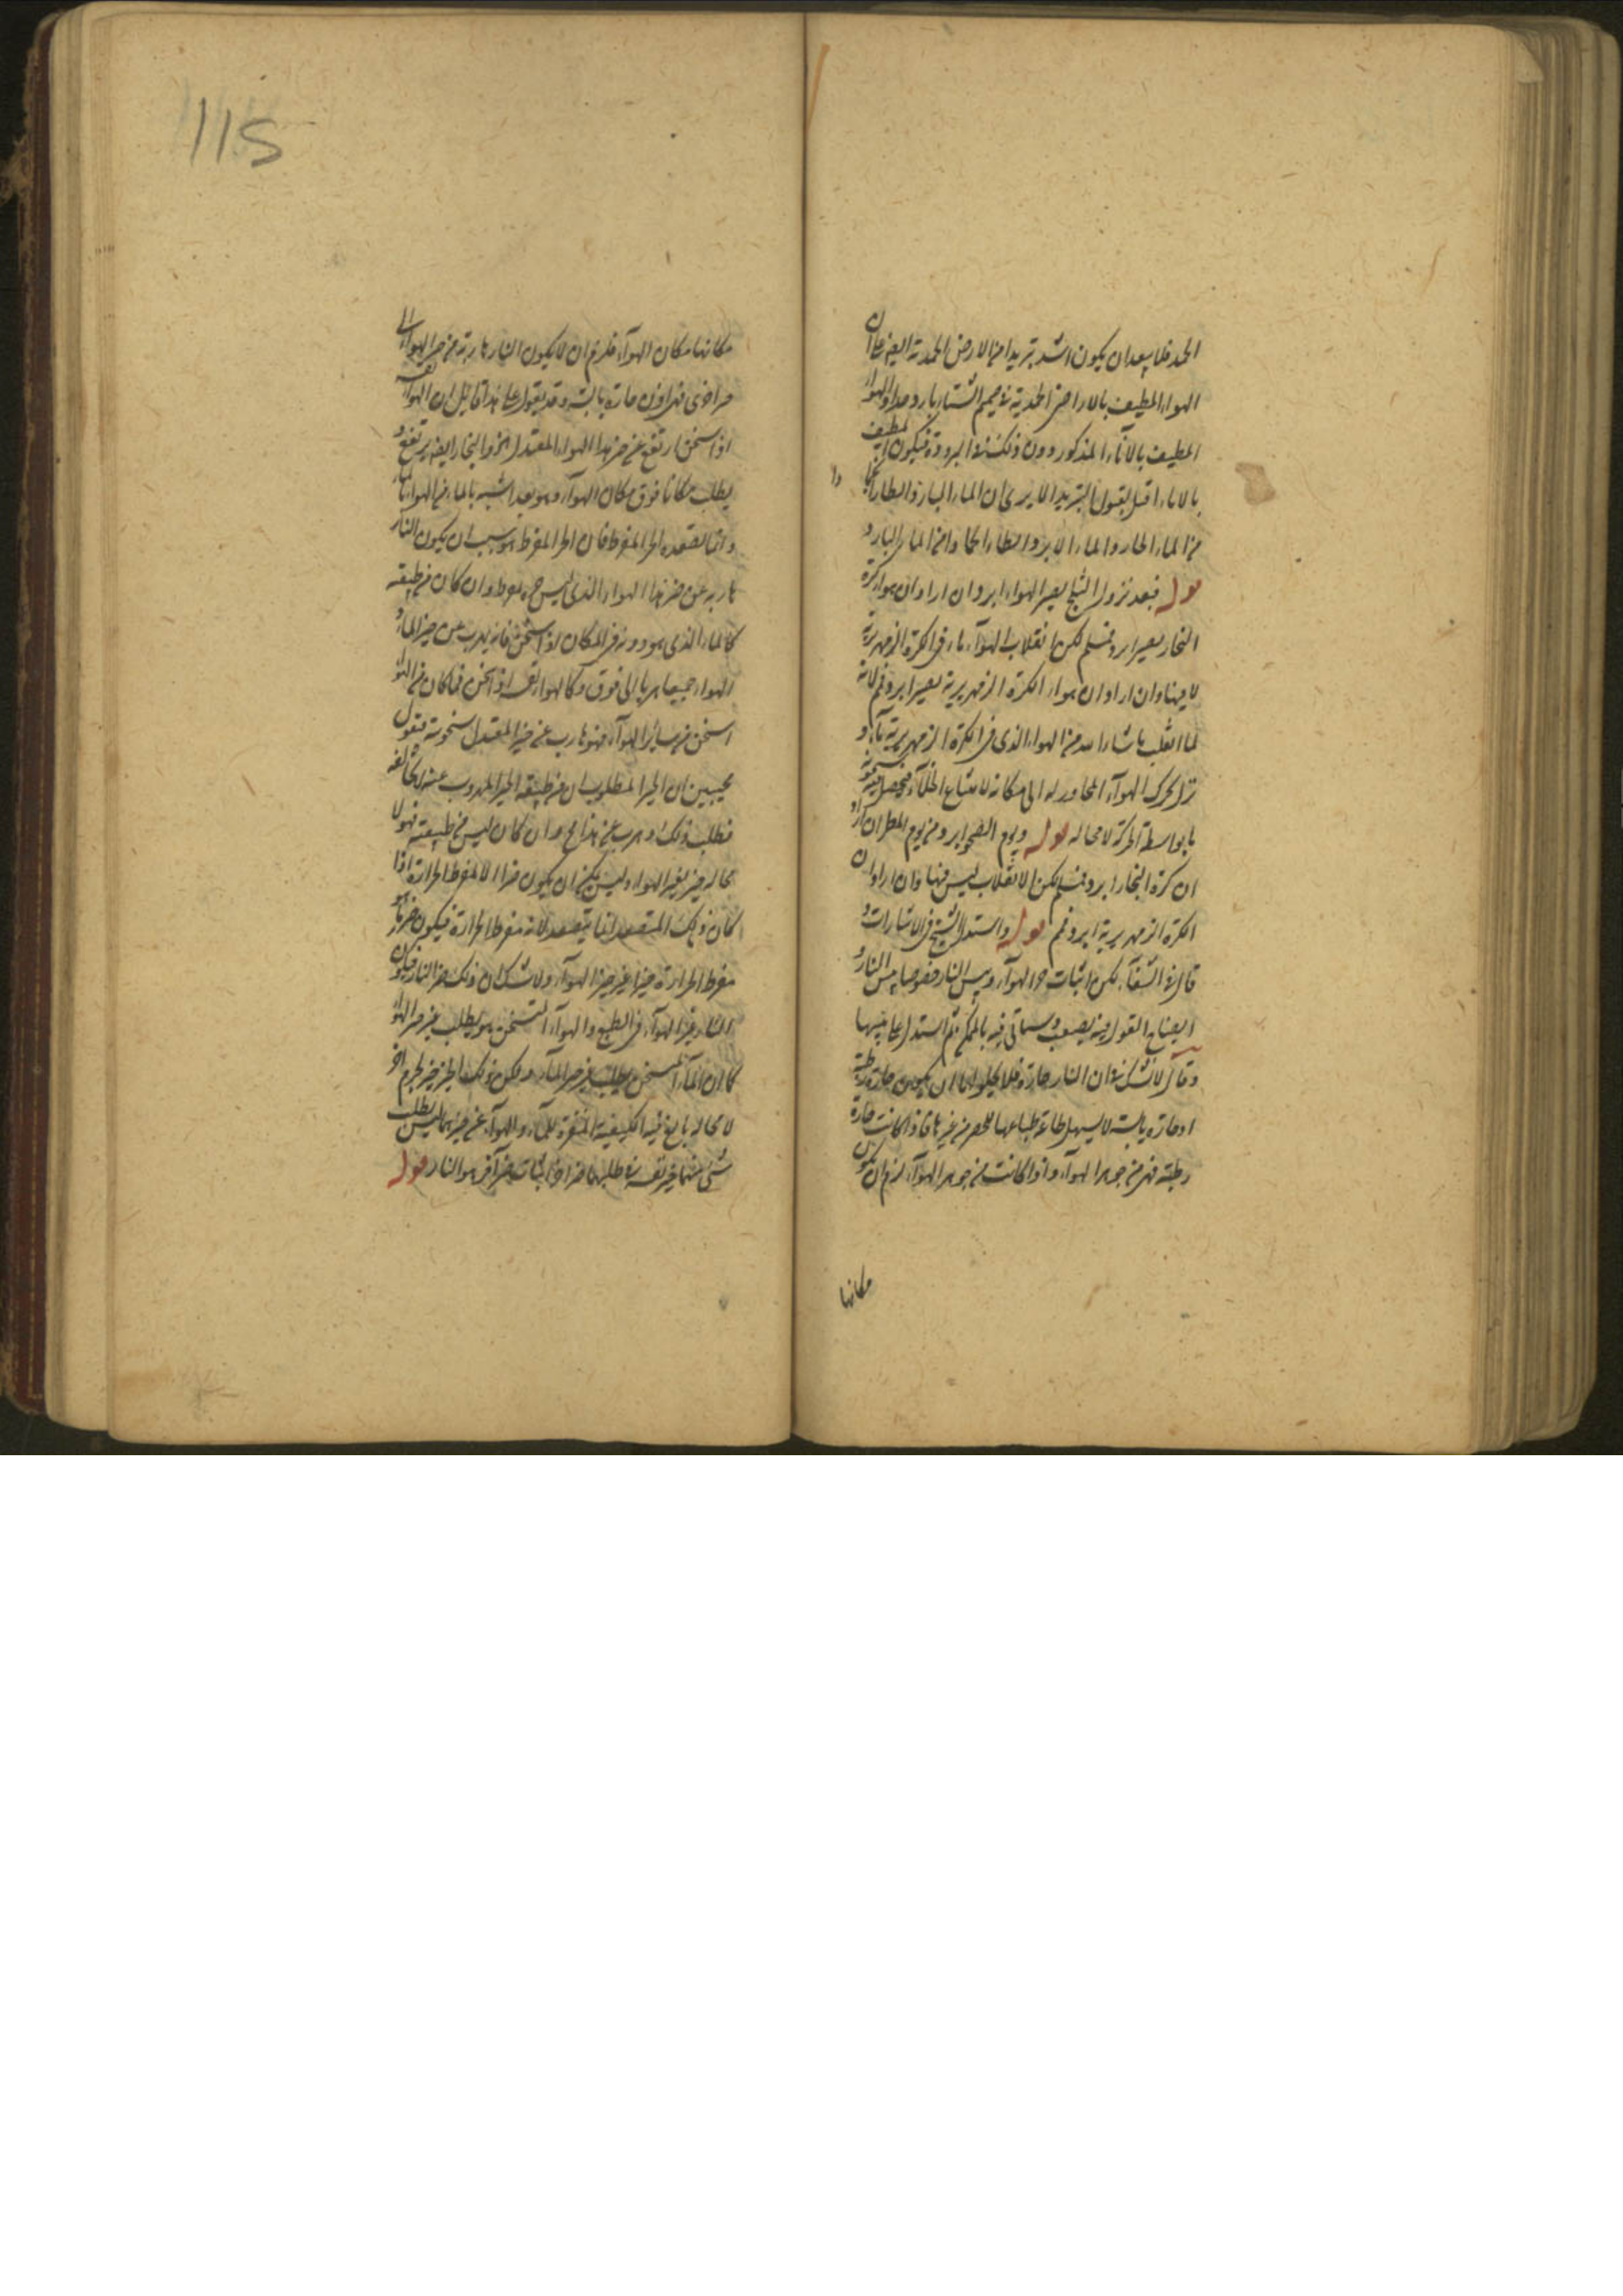 الجمد فلا يبعد ان يكون اشد تبريدا من الارض الجمدية ايضا على ان
الهواء المطيف بالاراضى الجمدية فى صميم الشتاء بارد جدا والهواء
المطيف بالاناء المذكور دون ذلك فى البرودة فيكون المطيف
بالاناء اقبل لقبول التبريد الا يرى ان الماء البارد
من الماء الحار والماء الابرد من الماء البارد
قوله فبعد نزول الثلج يصير الهواء ابرد ان اراد ان هواء كرة
البخار يصير ابرد فمسلم لكن انقلاب الهواء ماء فى الكرة الزمهريرية
لا فيها وان اراد ان هواء الكرة الزمهريرية يصير ابرد فمم لانه
لما انقلب ما شاء الله من الهواء الذى فى الكرة الزمهريرية ماء و
نزل تحرك الهواء المجاور له الى مكانه لامتناع الخلاء فيحصل فيه سخونة
ما بواسطة الحركة لا محالة قوله ويوم الصحو ابرد من يوم المطر ان اراد
ان كرة البخار ابرد فمسلم لكن الانقلاب ليس فيها وان اراد ان
الكرة الزمهريرية ابرد فمم قوله واستدل الشيخ فى الاشارات و
قال فى الشفاء لكن اثبات حر الهواء ويبس النار خصوصا يبس النار و
ايضاح القول فيه يصعب وسنأتى فيه بالممكن ثم استدل على يبسها
وقال لا نشك فى ان النار حارة فلا يخلو اما ان يكون حارة رطبة
او حارة يابسة لا يسهل طاعة طباعها للحصر من غيرها فاذا كانت حارة
رطبة فهى من جوهر الهواء واذا كانت من جوهر الهواء لزم ان يكون
مكانها
مكانها مكان الهواء فلزم ان لا يكون النار هاربة من حيز الهواء الى
حيز اخرى فهى اذن حارة يابسة وقد يقول على هذا قائل ان الهواء نفسه
اذا سخن ارتفع عن حيز هذا الهواء المعتدل الحر والبخار ايضا يرتفع و
يطلب مكانا فوق مكان الهواء وهو بعد اشبه بالماء من الهواء بالنار
وانما يصعده الحر المفرط فان الحر المفرط هو سبب ان يكون النار
هاربة عن حيز هذا الهواء الذى ليس حره بمفرط وان كان من طبيعته
كالماء الذى هو دونه فى المكان اذا سخن فانه يهرب عن حيز الماء و
الهواء جميعا هربا الى فوق وكالهواء نفسه اذا سخن فما كان من الهواء
اسخن من سائر الهواء فهو هارب عن حيز المعتدل سخونة فنقول
مجيبين ان الحيز المطلوب ان من طبيعته الحيز المهروب عنه لمخالفه
فطلب ذلك وهرب عن هذا مح وان كان ليس من طبيعته فهو لا
محالة حيز لغير الهواء وليس يمكن ان يكون حيزا الا لمفرط الحرارة اذا
كان ذلك المتصعد انما يتصعد لانه مفرط الحرارة فيكون حيز ما هو
مفرط الحرارة حيزا غير حيز الهواء ولا شك ان ذلك حيز النار فيكون
النار غير الهواء فى الطبع والهواء المتسخن هو يطلب غير حيز الهواء
كما ان الماء المتسخن يطلب غير حيز الماء ويكون ذلك الحيز حيز لجرم اخر
لا محالة بالغ فيه الكيفية المنفرة للماء والهواء عن حيزهما ليس يطلب
شئ منهما حيز نفسه فى طلبهما حيزا اخر اثبات حيز آخر هو النار قوله